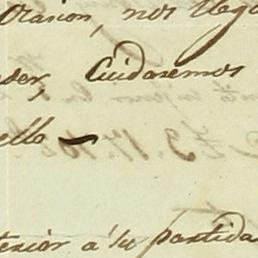 orasion, nos llega
der, Cuidaremos
ello —
terior á su partida